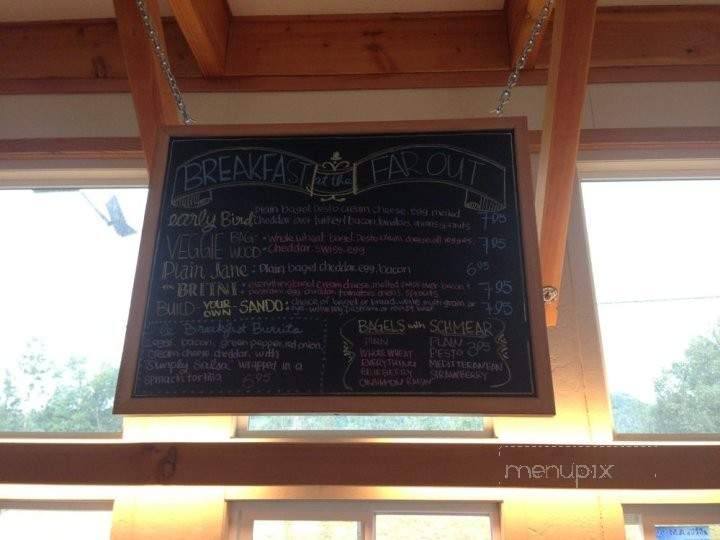 BREAKFAST at the FAR OUT
plain bagel pesto cream cheese, egg, melted
early Bird cheddar over turkey, bacon, tomatoes, onions, sprouts 7.95
VEGGIE BAG- whole wheat bagel, pesto cream cheese, all veggies, 7.95
WOOD cheddar, swiss, egg
Plain Jane: Plain bagel, cheddar, egg, bacon 6.95
everything bagel, cream cheese, melted swiss over bacon + 7.95
BRITNI pastrami, egg, cheddar, tomatoes, onions + sprouts
BUILD YOUR OWN SANDO: choice of bagel or bread, white, multi-grain or 7.95
rye
Breakfast Burrito
eggs, bacon, green pepper, red onion,
cream cheese, cheddar, with
Simply Salsa wrapped in a
spinach tortilla 6.95
BAGELS with SCHMEAR
PLAIN PLAIN 3.95
WHOLE WHEAT PESTO
EVERYTHING MEDITERRANEAN
BLUEBERRY STRAWBERRY
CINNAMON RAISIN
menupix